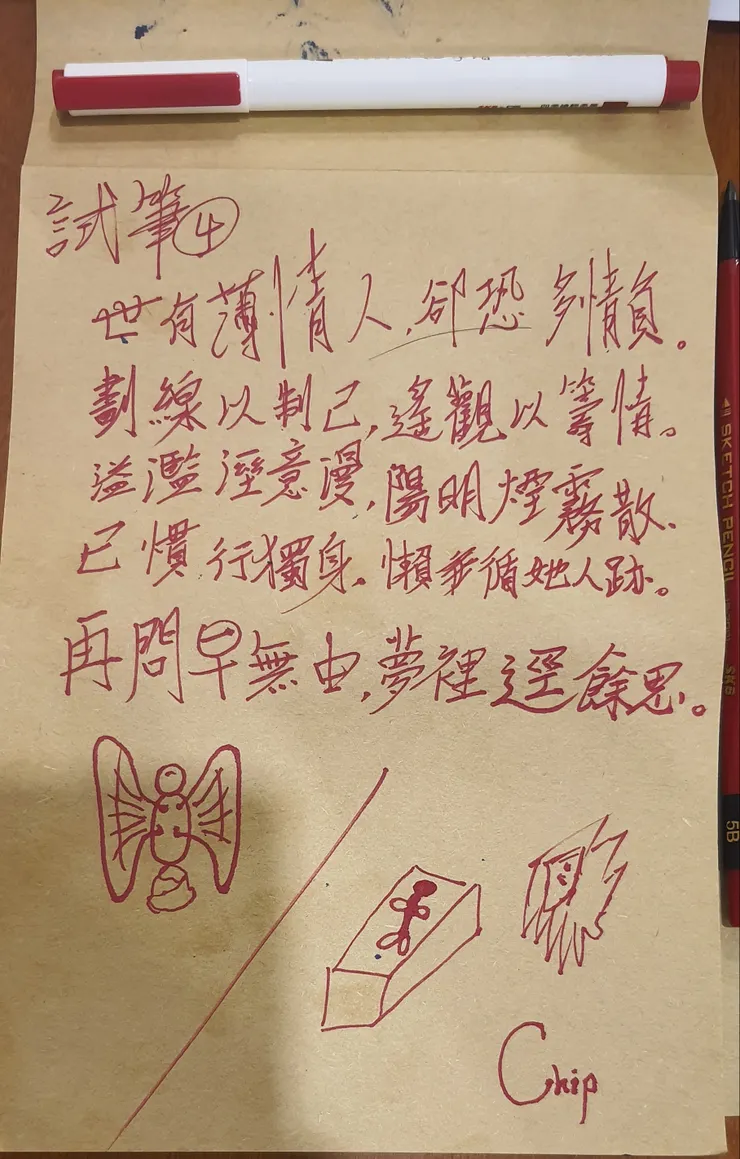 試筆④
世有薄情人,卻恐多情負。
劃線以制己,遙觀以等情。
溢濫溼意漫,陽明煙霧散、
已慣行獨身。懶乖循她人跡。
再問早無由,夢裡逕餘思。
Chip
SKETCH PENCIL
SK6
5B